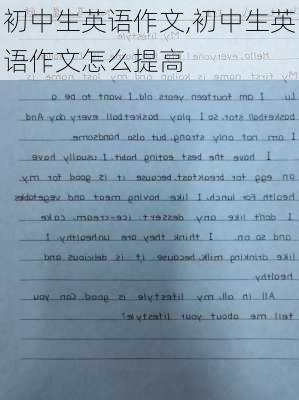 初中生英语作文,初中生英
语作文怎么提高
My lifestyle
Hello, everyone
My first name is and my last name is
Lu. I am fourteen years old. I want to be a
basketball star, so I play basketball every day. And
I am not only strong, but also handsome.
I have the best eating habit. I usually have
an egg for breakfast, because it is good for my
health. For lunch, I like having meat and vegetables
I don't like any dessert: ice-cream, cake
and so on. I think they are unhealthy. I
like drinking milk, because it is delicious and
healthy.
All in all, my lifestyle is good. Can you
tell me about your lifestyle?